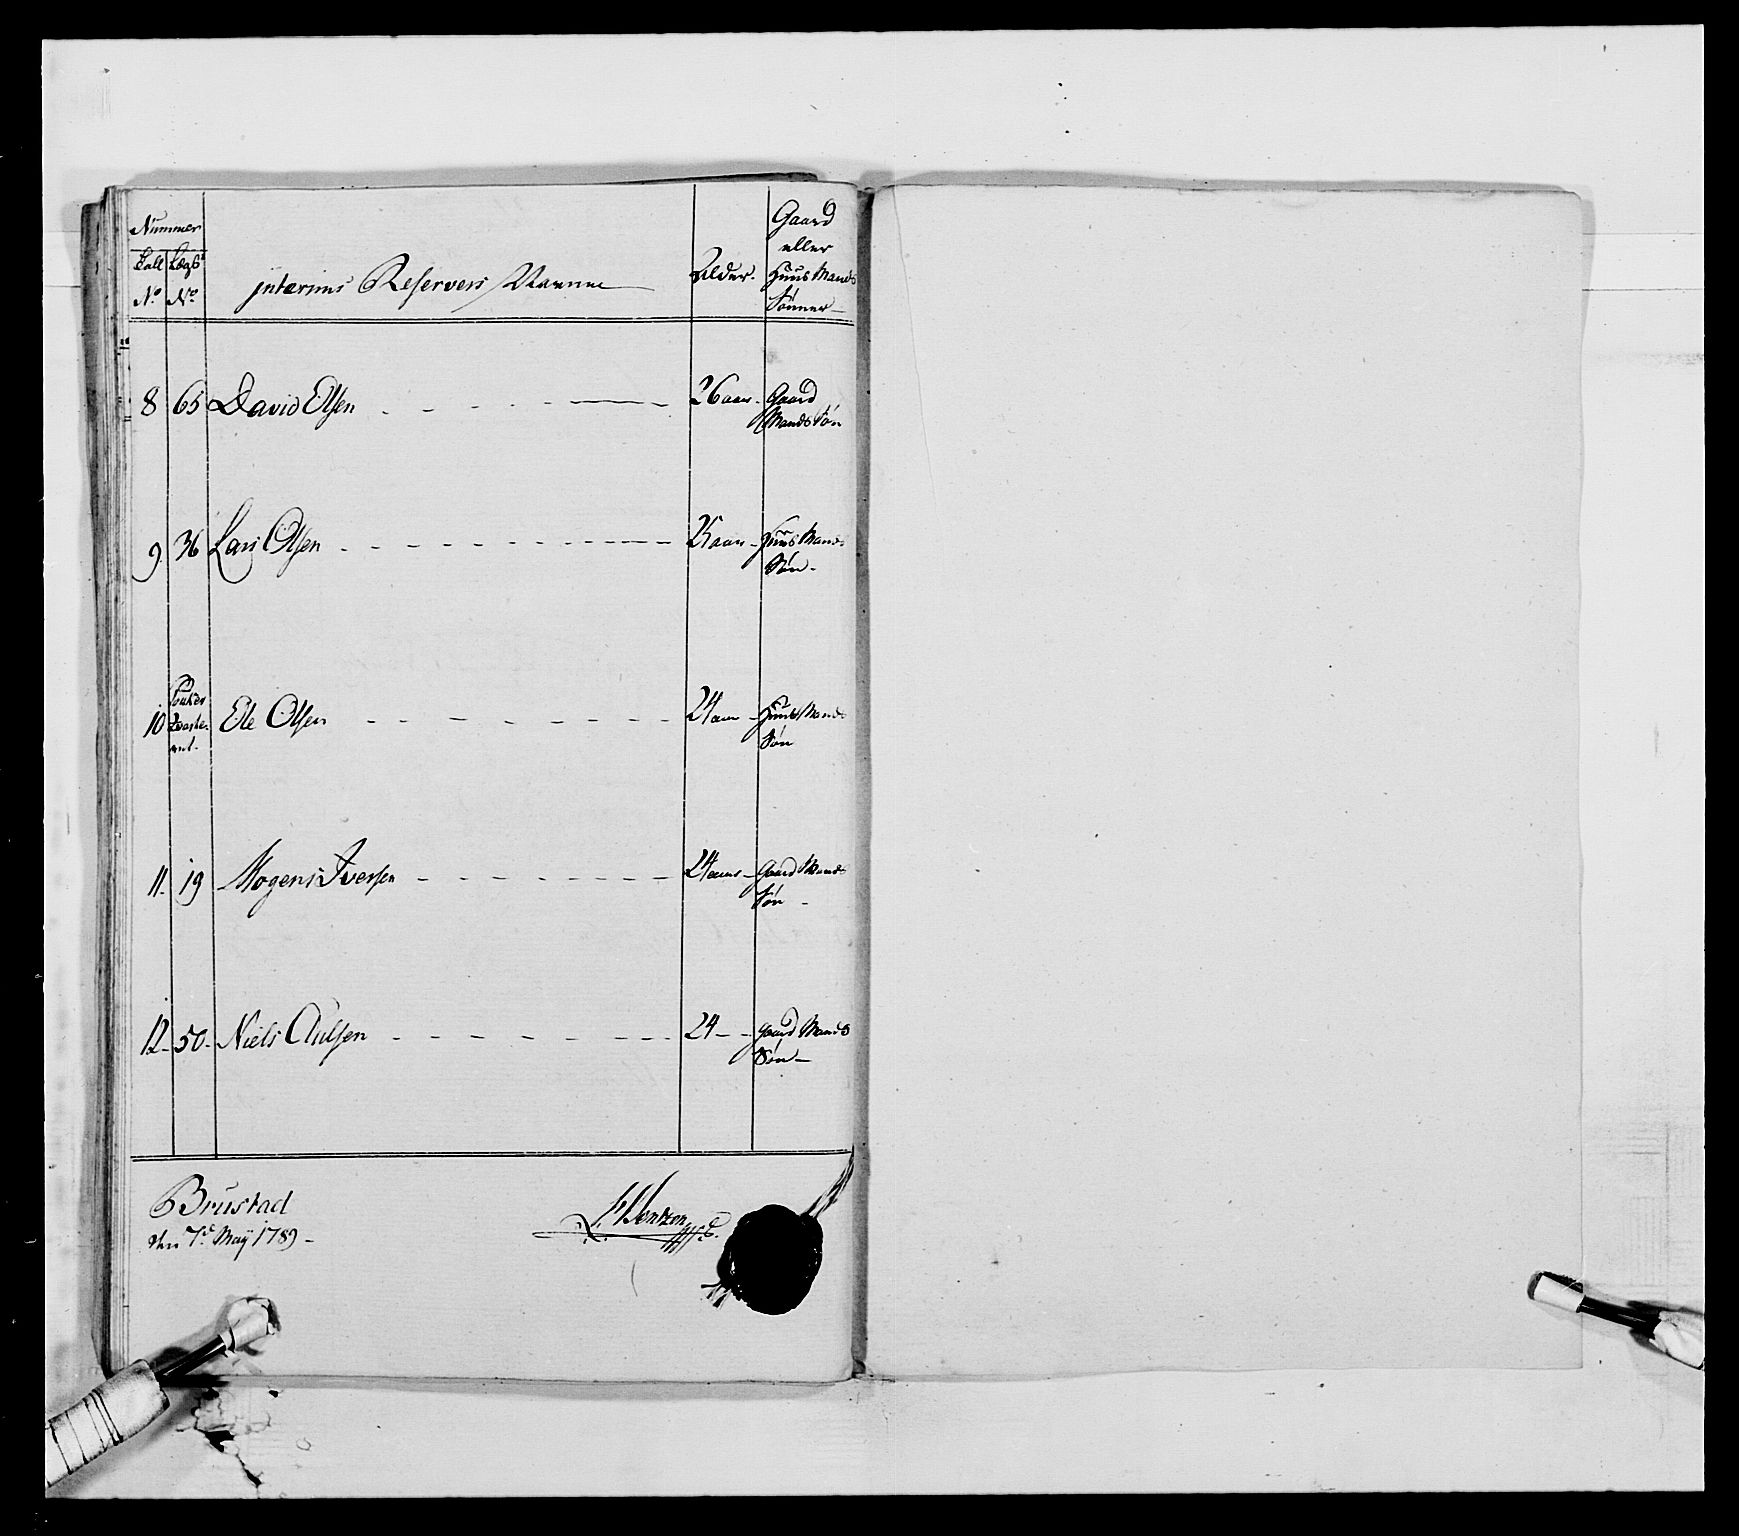 Nummer
Tall Lægs
No No
interims Reservers Navnne
Alder.
Gaard
eller
Huus Mands
Sønner
8 65 David Olsen 26 aar Gaard
Mands Søn
9 36 Lars Olsen 25 aar Huus Mands
Søn
10 Ole Olsen 24 aar Huus Mands
Søn
11 19 Mogens Iversen 24 aar Gaard Mands
Søn
12 50 Niels Aulsen 24 Gaard Mands
Søn
Brustad
den 7de May 1789